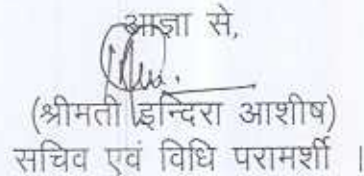 आज्ञा से,
(श्रीमती इन्दिरा आशीष)
सचिव एवं विधि परामर्शी ।